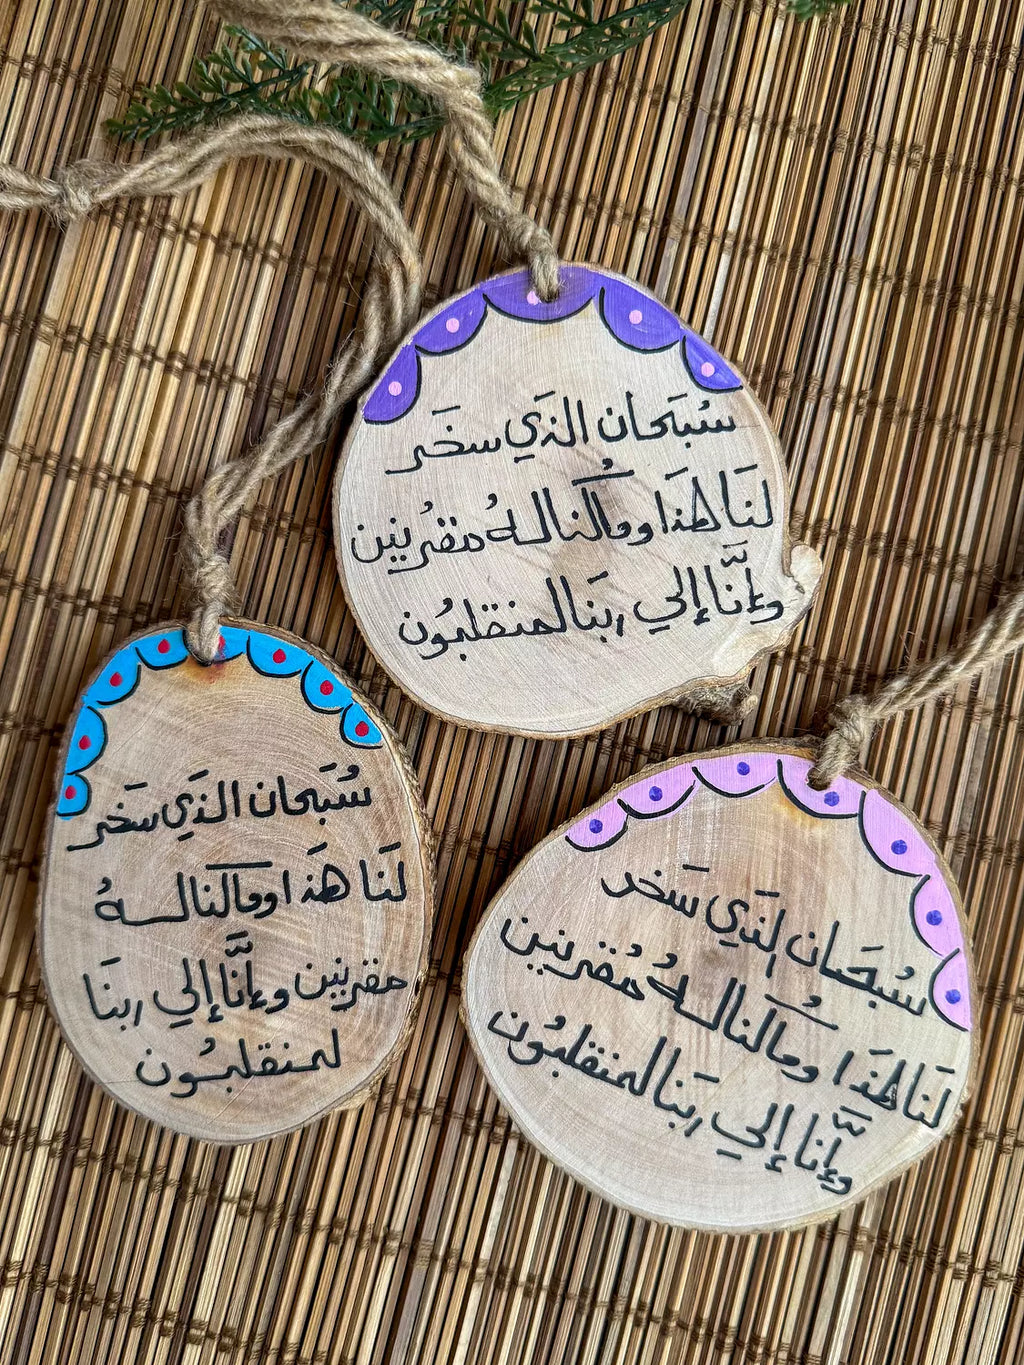 سُبَحان الذَي سخَر
لنَا هٰذَا وما كُنا لهُ مقرُنين
وإنَّا إلي ربنَا لمنقلبُون
سُبَحان الذَي سَخر
لنَا هذَا وما كنا لهُ
مقرنين وإنَّا إلي ربنَا
لمنقلبُون
سُبحَان الذَي سَخر
لنَا هٰذَا وما كُنا لهُ مُقرُنين
وإنَّا إلي ربنَا لمنقلبُون